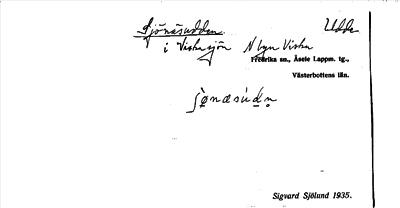 Sjönäsudden. Udde
i Viskasjön N byn Viska
Fredrika sn., Åsele Lappm. tg.,
Västerbottens län.
Sigvard Sjölund 1935.